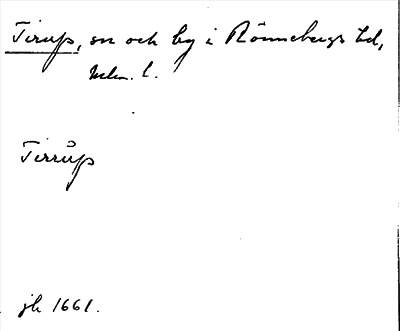 Tirup, sn och by i Rönnebergs hd,
Mlm. l.
Tirrŭp
jb 1661.